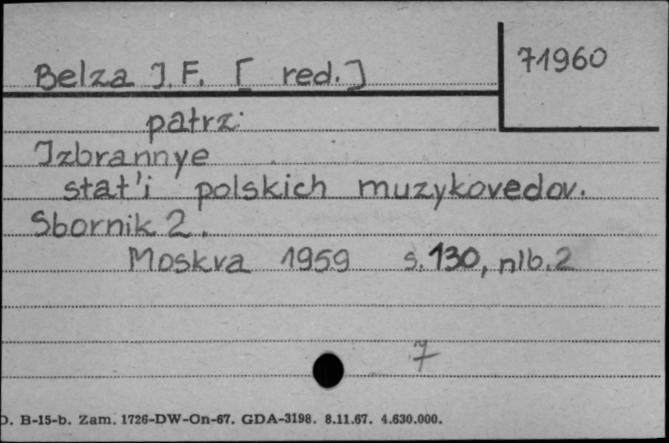 71960
Belza J. F. [ red. ]
patrz:
Izbrannye
stat'i polskich muzykovedov.
Sbornik 2.
Moskva 1959 s. 130, nlb. 2
7
D. B-15-b. Zam. 1726-DW-On-67. GDA-3198. 8.11.67. 4.630.000.